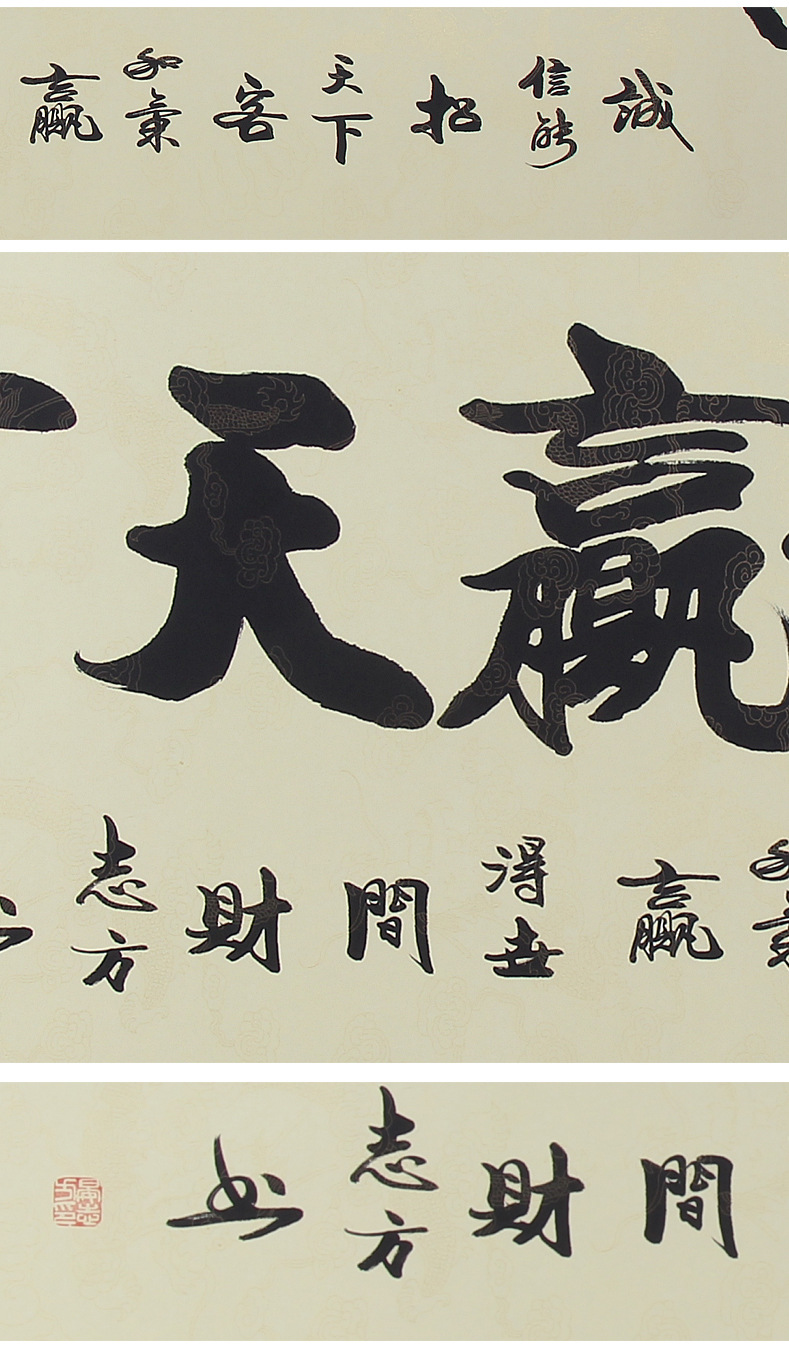 誠信能招天下客和氣贏
贏天
贏得世間財志方
間財志方书